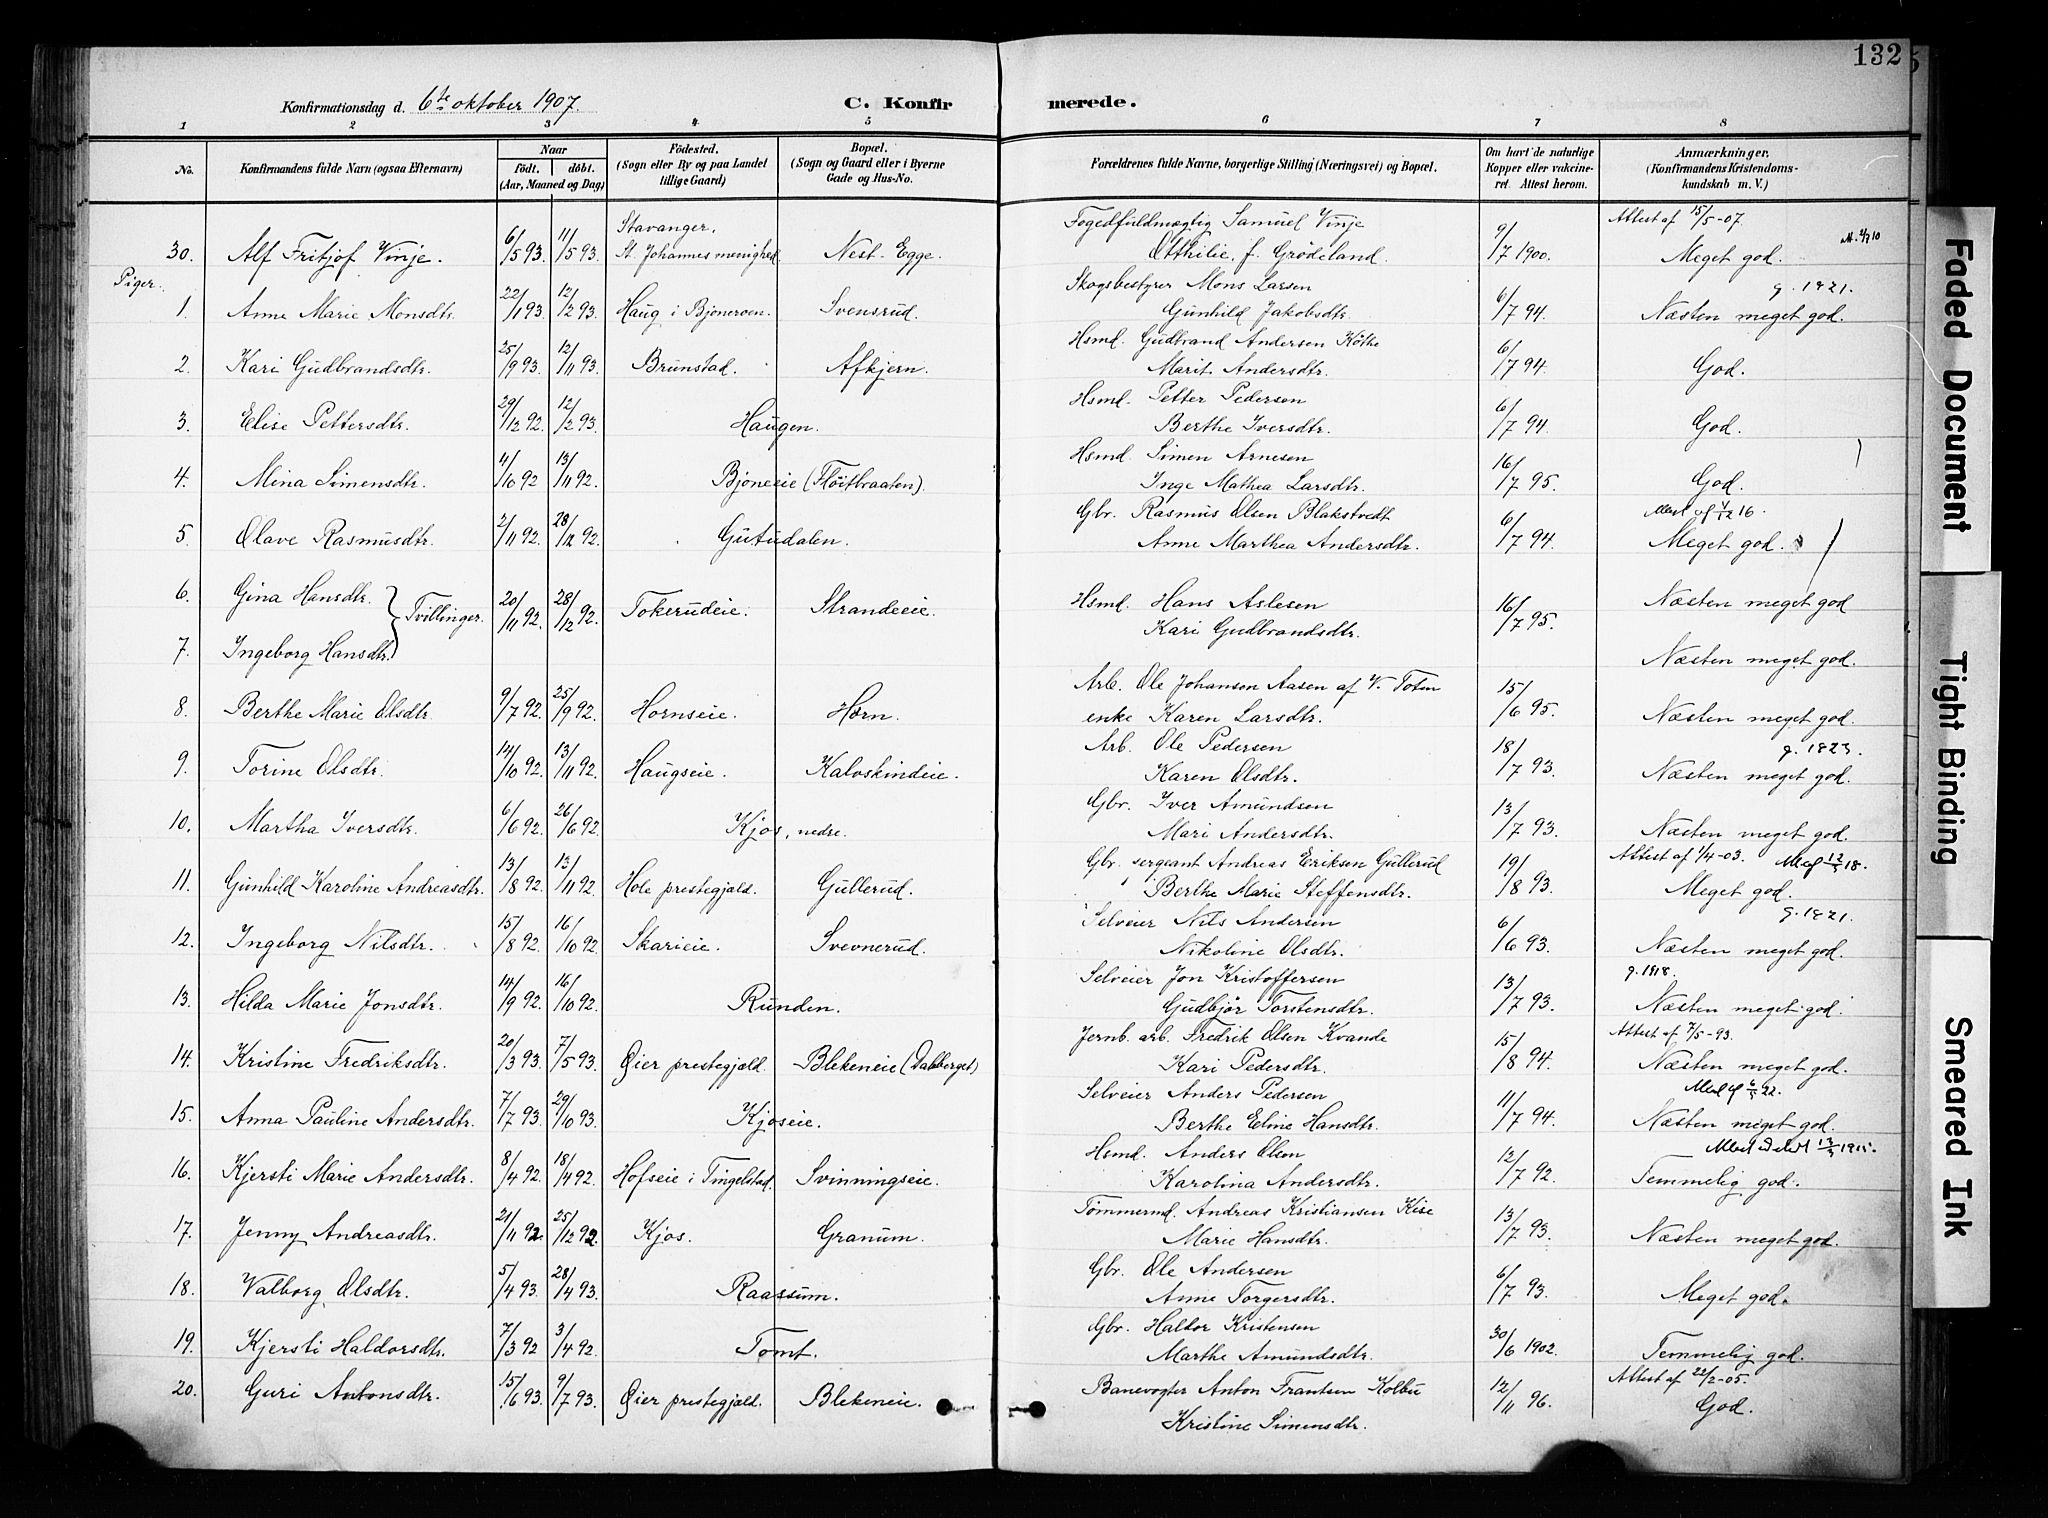 132
Konfirmationsdag d. 6te oktober 1907. C. Konfirmerede.
1 2 3 4 5 6 7 8
No. Konfirmandens fulde Navn (ogsaa Efternavn) Naar født. døbt. (Aar, Maaned og Dag) Fødested. (Sogn eller By og paa Landet tillige Gaard) Bopæl. (Sogn og Gaard eller i Byerne Gade og Hus-No. Forældrenes fulde Navne, borgerlige Stilling (Næringsvei) og Bopæl. Om havt de naturlige Kopper eller vakcineret. Attest herom. Anmærkninger. (Konfirmandens Kristendomskundskab m. V.)
30. Alf Fritjof Vinje. 6/5 93. 11/5 93. Stavanger, St. Johannes menighed Nest-Egge. Fogedfuldmægtig Samuel Vinje Otthilie, f. Grødeland. 9/7 1900. Attest af 15/5-07. Meget god.
Piger.
1. Anne Marie Monsdtr. 22/1 93. 12/2 93. Haug i Bjoneroen. Svensrud. Skogsbestyrer Mons Larsen Gunhild Jakobsdtr. 6/7 94. g. 1921. Næsten meget god.
2. Kari Gudbrandsdtr. 25/9 93. 12/11 93. Brunstad. Afkjern. Hsmd. Gudbrand Andersen Køthe Marit Andersdtr. 6/7 94. God.
3. Elise Pettersdtr. 29/12 92. 12/2 93. Haugen. Hsmd. Petter Pedersen Berthe Iversdtr. 6/7 94. God.
4. Mina Simensdtr. 4/10 92 13/11 92. Bjoneeie (Fløitbraaten). Hsmd. Simen Arnesen Inge Mathea Larsdtr. 16/7 95. God.
5. Olave Rasmusdtr. 2/11 92. 28/12 92. Gutudalen. Gbr. Rasmus Olsen Blakstvedt Anne Marthea Andersdtr. 6/7 94. Meget god.
6. Gina Hansdtr. Tvillinger. 20/11 92. 28/12 92. Tokerudeie. Strandeie. Hsmd. Hans Aslesen Kari Gudbrandsdtr. 16/7 95. Næsten meget god
7. Ingeborg Hansdtr. Næsten meget god.
8. Berthe Marie Olsdtr. 9/7 92. 25/9 92. Hornseie. Horn. Arb. Ole Johansen Aasen af V. Toten enke Karen Larsdtr. 15/6 95. Næsten meget god.
9. Torine Olsdtr. 14/10 92. 13/11 92. Haugseie. Kalvskindeie. Arb. Ole Pedersen Karen Olsdtr. 18/7 93. g. 1923. Næsten meget god.
10. Martha Iversdtr. 6/6 92. 26/6 92. Kjos, nedre. Gbr. Iver Amundsen Mari Andersdtr. 13/7 93. Næsten meget god.
11. Gunhild Karoline Andreasdtr. 13/8 92. 13/11 92. Hole prestegjæld. Gullerud. Gbr. sergeant Andreas Eriksen Gullerud Berthe Marie Steffensdtr. 19/8 93. Attest af 1/4-03. Meget god.
12. Ingeborg Nilsdtr. 15/8 92. 16/10 92. Skarieie. Svevnerud. Selveier Nils Andersen Nikoline Olsdtr. 6/6 93. g. 1921. Næsten meget god.
13. Hilda Marie Jonsdtr. 14/9 92. 16/10 92. Runden. Selveier Jon Kristoffersen Gudbjør Torstensdtr. 13/7 93. g. 1918. Næsten meget god.
14. Kristine Fredriksdtr. 20/3 93. 7/5 93. Øier prestegjæld. Blekeneie (Dalsberget) Jernb. arb. Fredrik Olsen Kvande Kari Pedersdtr. 15/8 94. Attest af 7/5-93. Næsten meget god.
15. Anna Pauline Andersdtr. 7/7 93. 29/10 93. Kjoseie. Selveier Anders Pedersen Berthe Eline Hansdtr. 11/7 94. Næsten meget god.
16. Kjersti Marie Andersdtr. 8/4 92. 18/4 92. Hofseie i Tingelstad. Svinningseie. Hsmd. Anders Olsen Karolina Andersdtr. 12/7 92. Temmelig god.
17. Jenny Andreasdtr. 21/11 92. 25/12 92. Kjos. Granum. Tømmermd. Andreas Kristiansen Kise Marie Hansdtr. 13/7 93. Næsten meget god.
18. Valborg Olsdtr. 5/4 93. 28/4 93. Raassum. Gbr. Ole Andersen Anne Torgersdtr. 6/7 93. Meget god.
19. Kjersti Haldorsdtr. 7/3 92. 3/4 92. Tomt. Gbr. Haldor Kristensen Marthe Amundsdtr. 30/6 1902. Temmelig god.
20. Guri Antonsdtr. 15/6 93. 9/7 93. Øier prestegjæld. Blekeneie. Banevogter Anton Frantsen Kolbu Kristine Simensdtr. 12/11 96. Attest af 22/2-05. God.
Faded Document
Tight Binding
Smeared Ink